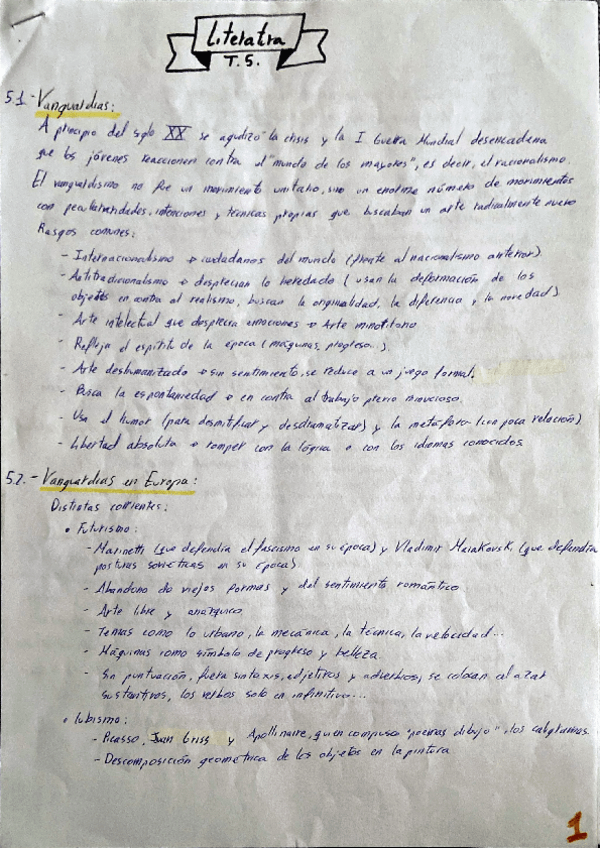 Literatura
T. 5.
5.1.- Vanguardias:
A principio del siglo XX se agudizó la crisis y la I Guerra Mundial desencadena
que los jóvenes reaccionen contra el "mundo de los mayores", es decir, el racionalismo.
El vanguardismo no fue un movimiento unitario, sino un enorme número de movimientos
con peculiaridades, intenciones y técnicas propias que buscaban un arte radicalmente nuevo
Rasgos comunes:
- Internacionalismo → ciudadanos del mundo (frente al nacionalismo anterior).
- Antitradicionalismo → desprecian lo heredado (usan la deformación de los
objetos en contra al realismo, buscan la originalidad, la diferencia y la novedad).
- Arte intelectual que desprecia emociones → Arte minoritario
- Refleja el espíritu de la época (máquinas, progreso...).
- Arte deshumanizado → sin sentimiento, se reduce a un juego formal.
- Busca la espontaneidad → en contra al trabajo previo minucioso.
- Usa el humor (para desmitificar y desdramatizar) y la metáfora (con poca relación)
- Libertad absoluta → romper con la lógica o con los idiomas conocidos
5.2.- Vanguardias en Europa:
Distintas corrientes:
• Futurismo:
- Marinetti (que defendía el fascismo en su época) y Vladimir Maiakovski (que defendía
posturas soviéticas en su época)
- Abandono de viejos formas y del sentimiento romántico
- Arte libre y anárquico
- Temas como lo urbano, la mecánica, la técnica, la velocidad...
- Máquinas como símbolo de progreso y belleza.
- Sin puntuación, fuera sintaxis, adjetivos y adverbios, se colocan al azar
sustantivos, los verbos solo en infinitivo...
• Cubismo:
- Picasso, Juan Griss y Apollinaire, quien compuso "poemas dibujo", los caligramas.
- Descomposición geométrica de los objetos en la pintura
1